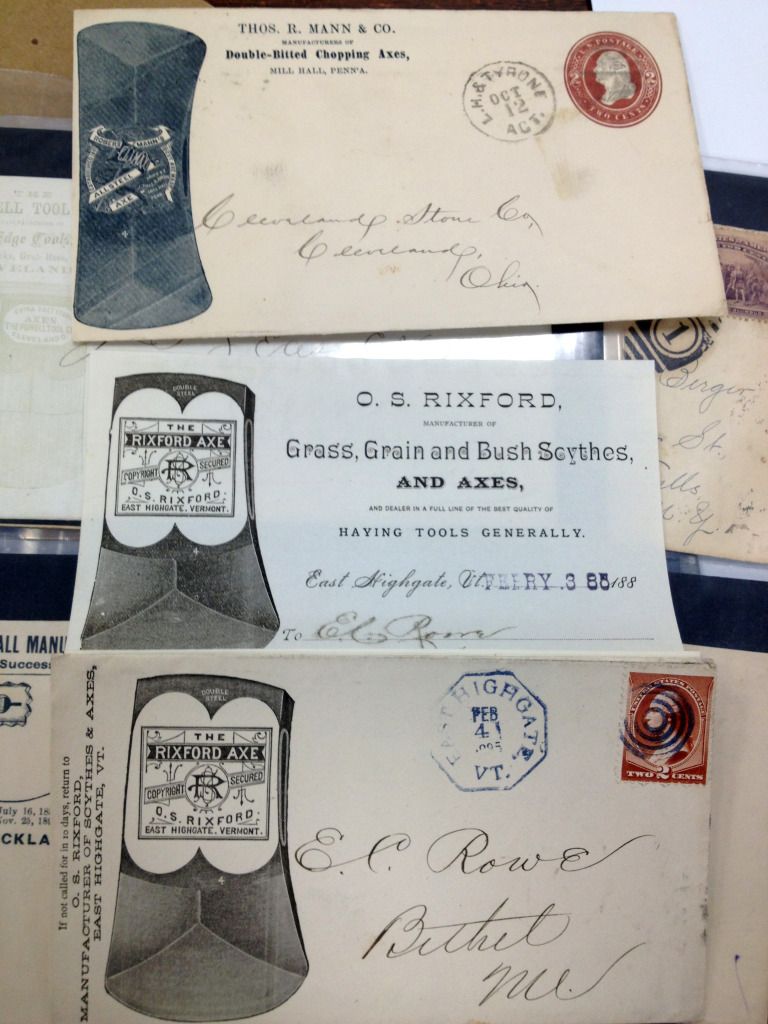 THOS. R. MANN & CO.
MANUFACTURERS OF
Double-Bitted Chopping Axes,
MILL HALL, PENN'A.
ROBERT MANN
ALL STEEL
AXE
L.H. & TYRONE
OCT
12
ACT.
U.S. POSTAGE
2 2
TWO CENTS
Cleveland Stone Co,
Cleveland,
Ohio
THE
ELL TOOL
Edge Tools
AXES
THE POWELL TOOL CO
CLEVELAND O.
1
Berger
St.
Falls
N.Y.
DOUBLE
STEEL
THE
RIXFORD AXE
COPYRIGHT R SECURED
O. S. RIXFORD.
EAST HIGHGATE. VERMONT.
O. S. RIXFORD,
MANUFACTURER OF
Grass, Grain and Bush Scythes,
AND AXES,
AND DEALER IN A FULL LINE OF THE BEST QUALITY OF
HAYING TOOLS GENERALLY.
East Highgate, Vt. 3 85 188
To E.C. Rowe
ALL MANU
Success
July 16, 18
Nov. 25, 18
CKLA
If not called for in 10 days, return to
O. S. RIXFORD,
MANUFACTURER OF SCYTHES & AXES,
EAST HIGHGATE, VT.
DOUBLE
STEEL
THE
RIXFORD AXE
COPYRIGHT R SECURED
O. S. RIXFORD.
EAST HIGHGATE. VERMONT.
EAST HIGHGATE,
FEB
4
VT.
TWO 2 CENTS
E. C. Rowe
Bethel
Me